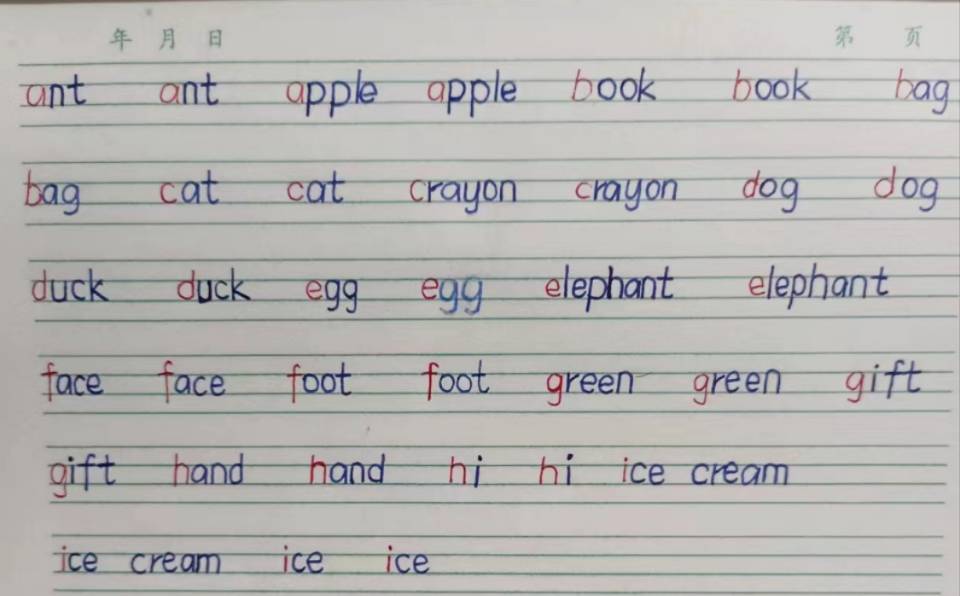 年 月 日 第 页
ant ant apple apple book book bag
bag cat cat crayon crayon dog dog
duck duck egg egg elephant elephant
face face foot foot green green gift
gift hand hand hi hi ice cream
ice cream ice ice